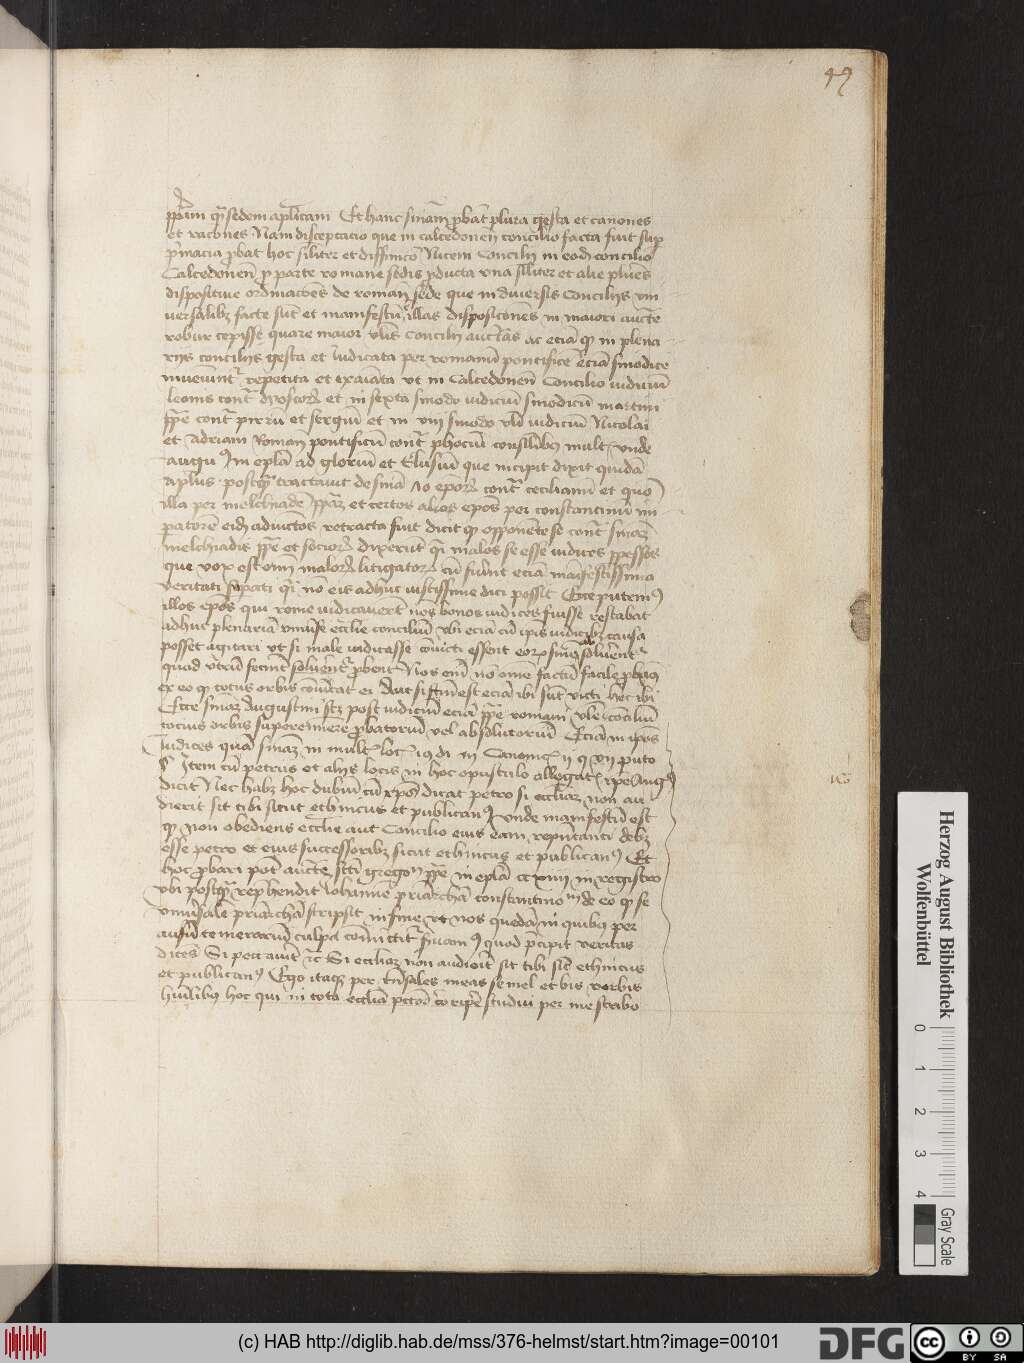 49
sedem aplicam Et hanc sniam pbat plura gesta et canones
et racones Nam disceptacio que in calcedonen concilio facta fuit sup
pmacia pbat hoc siliter et diffinico Niceni Concilii in eod concilio
Calcedonen p parte romane sedis pducta vna siliter et alie plures
dispositiue ordinacoes de romana sede que in diuersis Conciliis vni
uersalibz facte sut et manifestu illas disposicones in maiori aucte
robur cepisse quare maior vlis Concilii auctas ac ecia q in plena
riis conciliis gesta et iudicata per romanu pontifice ecia sinodice
inueniut repetita et exaiata vt in Calcedonen Concilio iudiciu
leonis cont dyoscor et in sexta sinodo iudiciu sinodicu martini
ppe cont pirru et sergiu et in viij sinodo vli iudiciu Nicolai
et Adriani Roman pontificu cont phociu consilibz mult vnde
Augu in epla ad gloriu et Elusiu que incipit dixit quida
aplus postq tractauit de snia epor cont cecilianu et quo
illa per melchiade ppa et certos alios epos per constantinu im
patore eid adiunctos retracta fuit dicit q opponete se cont snia
melchiadis ppe et socior dixerut qi malos se esse iudices ppessos
que vox est oim malor litigator cu fuint ecia maifestissima
veritati supati qi no eis adhuc iustissime dici possit Ecce putem
illos epos qui rome iudicauert nos bonos iudices fuisse restabat
adhuc plenaria vniuse ecclie conciliu vbi ecia cu ipis iudicibz causa
posset agitari vt si male iudicasse conuicti essent eor snie soluerent
quod vtru fecint soluerent pbent Nos eni no oime factu facile pbam
ex eo q totus orbis coicat ei Aut si factu est ecia ibi sut victi hec ibi
Ecce snia Augustini scz post iudiciu ecia ppe romani vle conciliu
tocius orbis superesse pbatoriu vel absolutoriu Ecia in ipos
Iudices qua snia in mult loc
Item cu petrus et aliis locis in hoc opusculo allegat xpe Aug
dicit Nec habz hoc dubiu cu xpo dicat petro si eccliaz non au
dierit sit tibi sicut ethnicus et publican vnde manifestu est
q non obediens ecclie aut Concilio eius eam repntanti debz
esse petro et eius successoribz sicut ethnicus et publican Et
hoc pbari pot aucte scti gregorii ppe in epla in registro
vbi postq rephendit Iohanne priarcha constantino de eo q se
vniusale priarcha scripsit in fine vt nos queda in quibz per
ausu temerariu culpa comittit seruam quod pcipit veritas
dices Si pecc auit rc Si eccliaz non audierit sit tibi sic ethnicus
et publican Ego itaq per rnsales meas semel et bis verbis
huilibz hoc qui in tota ecclia pccor coripe studui per me scribo
Herzog August Bibliothek
Wolfenbüttel
0 1 2 3 4
Gray Scale
(c) HAB http://diglib.hab.de/mss/376-helmst/start.htm?image=00101
DFG
cc BY SA